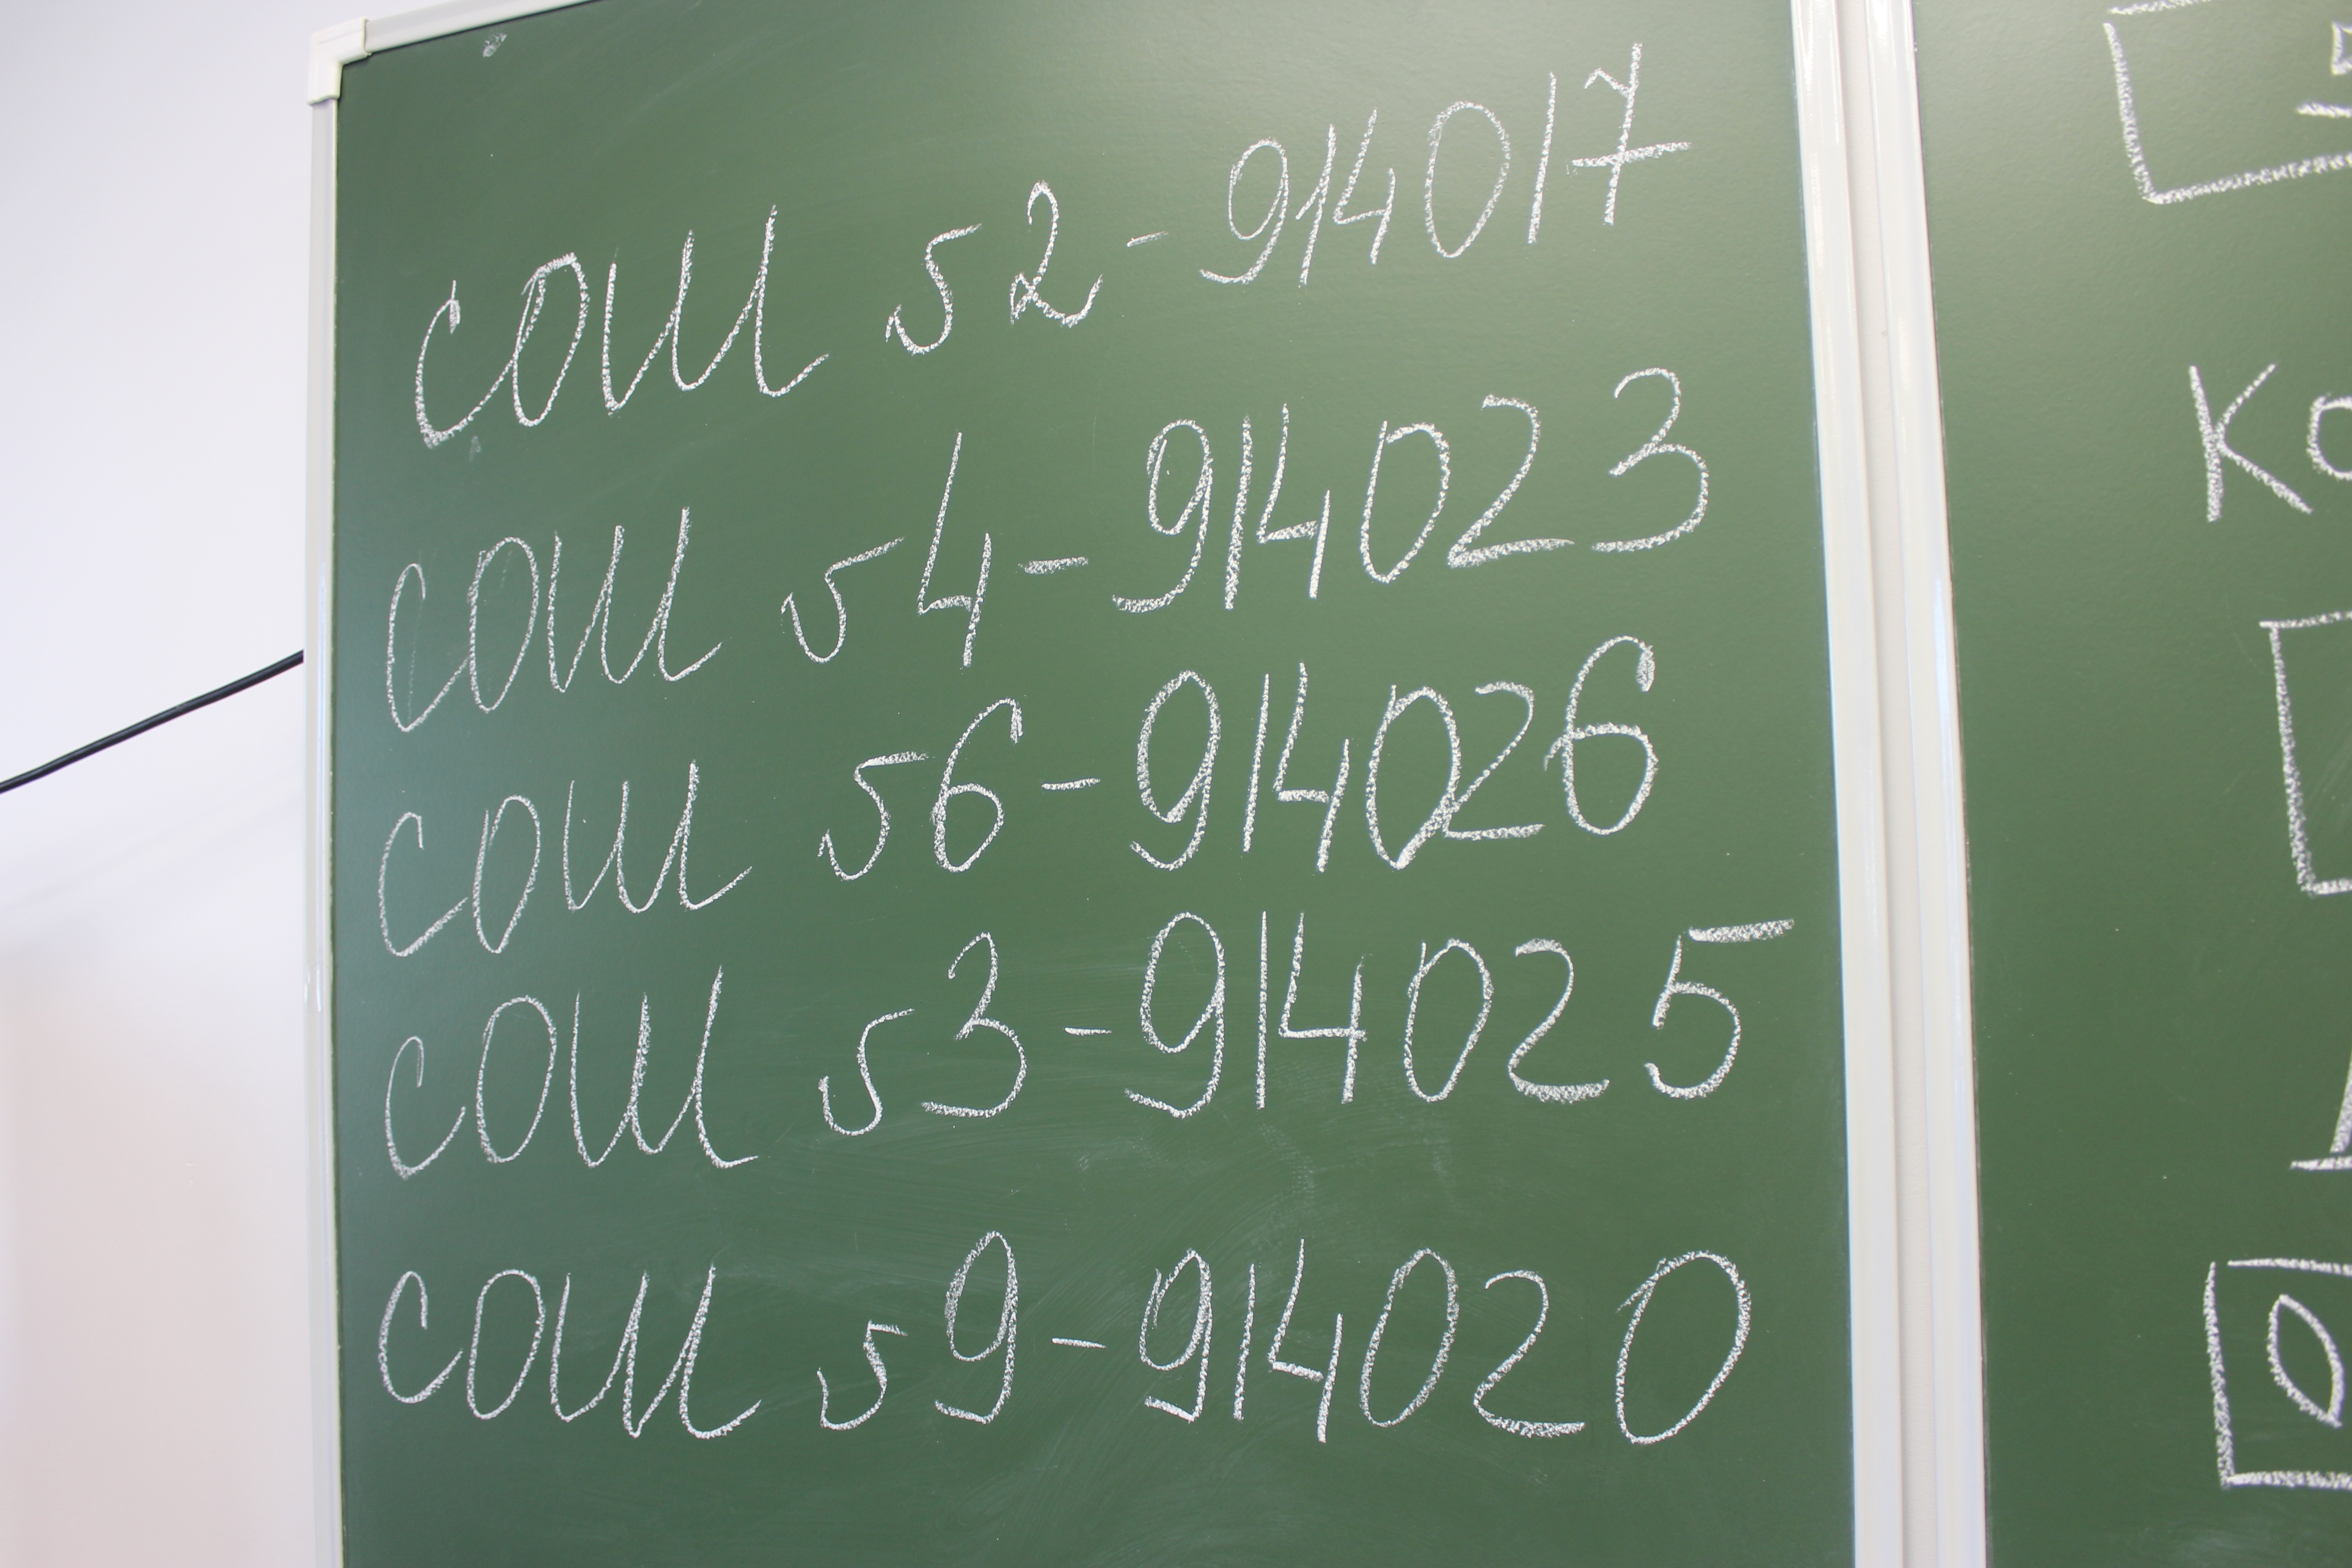 сош 52 - 914017
сош 54 - 914023
сош 56 - 914026
сош 53 - 914025
сош 59 - 914020